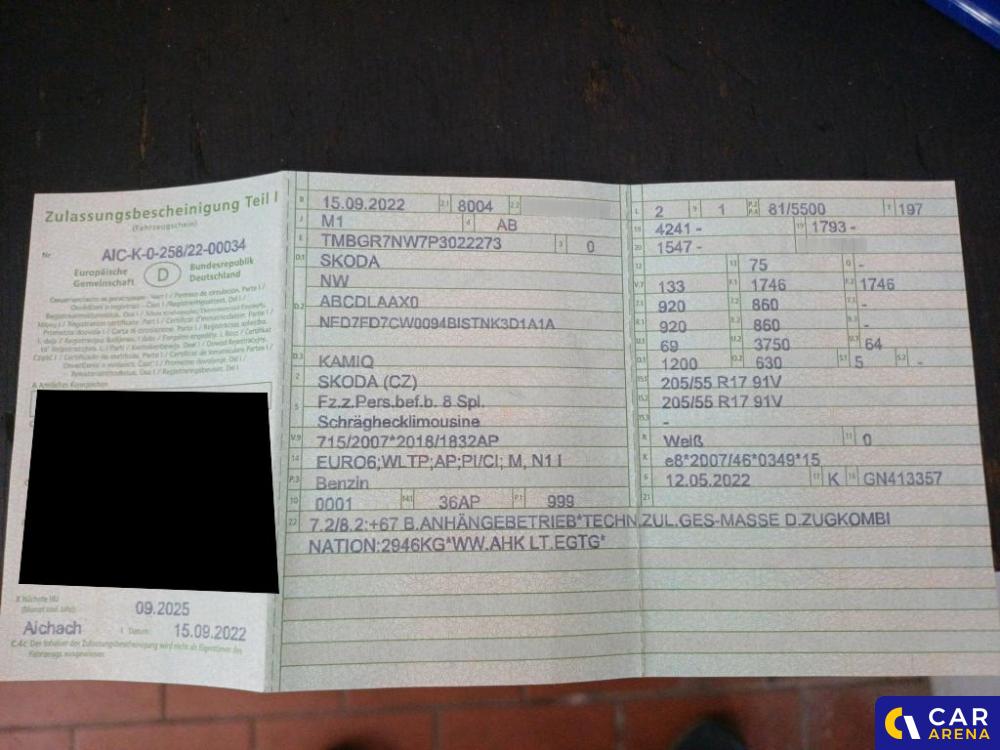 Zulassungsbescheinigung Teil I
(Fahrzeugschein)
Nr. AIC-K-0-258/22-00034
Europäische Gemeinschaft D Bundesrepublik Deutschland
A Amtliches Kennzeichen
X Nächste HU
(Monat und Jahr) 09.2025
Aichach I Datum: 15.09.2022
C.4c Der Inhaber der Zulassungsbescheinigung wird nicht als Eigentümer des
Fahrzeugs ausgewiesen.
B 15.09.2022 2.1 8004 2.2
J M1 4 AB
E TMBGR7NW7P3022273 3 0
D.1 SKODA
NW
D.2 ABCDLAAX0
NFD7FD7CW0094BISTNK3D1A1A
D.3 KAMIQ
2 SKODA (CZ)
5 Fz.z.Pers.bef.b. 8 Spl.
Schräghecklimousine
V.9 715/2007*2018/1832AP
14 EURO6;WLTP;AP;PI/CI; M, N1 I
P.3 Benzin
10 0001 14.1 36AP P.1 999
22 7.2/8.2:+67 B.ANHÄNGEBETRIEB*TECHN.ZUL.GES-MASSE D.ZUGKOMBI
NATION:2946KG*WW.AHK LT.EGTG*
L 2 9 1 P.2 P.4 81/5500 T 197
18 4241 - 19 1793 -
20 1547 -
12 - 13 75 Q -
V.7 133 F.1 1746 F.2 1746
7.1 920 7.2 860 7.3 -
8.1 920 8.2 860 8.3 -
U.1 69 U.2 3750 U.3 64
O.1 1200 O.2 630 S.1 5 S.2 -
15.1 205/55 R17 91V
15.2 205/55 R17 91V
15.3 -
R Weiß 11 0
K e8*2007/46*0349*15
6 12.05.2022 17 K 16 GN413357
21
CAR
ARENA